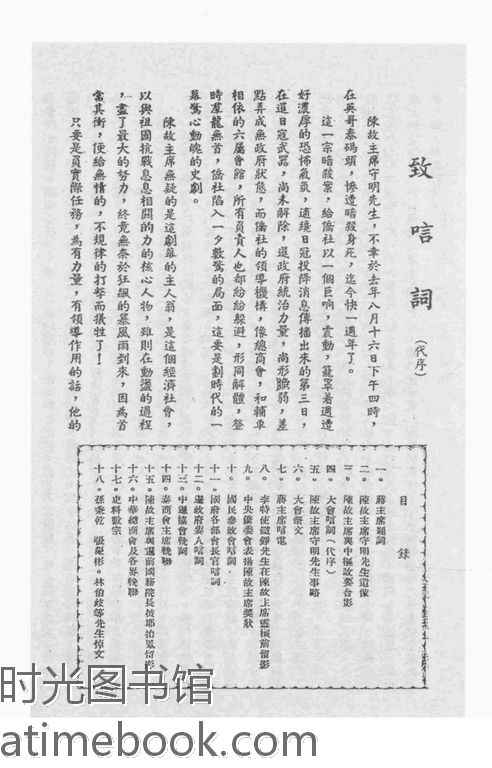 致唁詞
（代序）
陳故主席守明先生，不幸於去年八月十六日下午四時，
在英哥泰碼頭，慘遭暗殺身死，迄今快一週年了。
這一宗暗殺案，給僑社以一個巨响，震動，籠罩着週遭
好濃厚的恐怖氣氛，適緣日冦投降消息傳播出來的第三日，
在這日冦武器，尚未解除，暹政府統治力量，尚形脆弱，差
點弄成無政府狀態，而僑社的領導機構，像總商會，和輔車
相依的六屬會館，所有負責人也都紛紛躲避，形同解體，登
時羣龍無首，僑社陷入一夕數驚的局面，這要是劃時代的一
幕驚心動魄的史劇。
陳故主席無疑的是這劇幕的主人翁，是這個經濟社會，
以與祖國抗戰息息相關的力的核心人物，雖則在動盪的過程
，盡了最大的努力，終竟無奈於狂飆的暴風雨到來，因為首
當其衝，便給無情的，不規律的打擊而犧牲了！
只要是負實際任務，為有力量，有領導作用的話，他的
目錄
一。蔣主席題詞
二。陳故主席守明先生遺像
三。陳故主席與中樞政要合影
四。大會唁詞（代序）
五。陳故主席守明先生事略
六。大會祭文
七。蔣主席唁電
八。李特使鐵錚先生在陳故主席靈櫬前留影
九。中央僑委會表揚陳故主席獎狀
十。國民參政會唁詞
十一。國府各部會長官唁詞
十二。暹政府要人唁詞
十三。中暹協會輓詞
十四。泰商會主席輓聯
十五。陳故主席與暹前國務院長披耶拍鳳合影
十六。中華總商會及各界輓聯
十七。史料數宗
十八。孫秉乾 張蘭彬。林伯岐等先生悼文
时光图书馆
atimebook.com